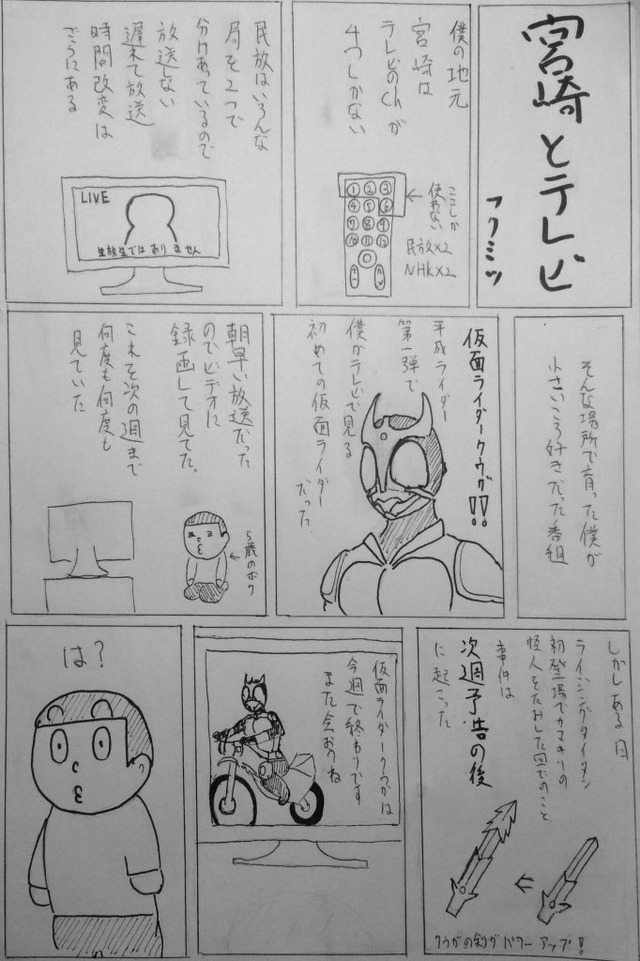 宮崎とテレビ
フクミツ
僕の地元
宮崎は
テレビのchが
4つしかない
ここしか
使わない
民放×2
NHK×2
民放はいろんな
局を2つで
分けあっているので
放送しない
遅れて放送
時間改変は
ざらにある
LIVE
生放生ではありません
そんな場所で育った僕が
小さいころ好きだった番組
仮面ライダークウガ!!
平成ライダー
第一弾で
僕がテレビで見る
初めての仮面ライダー
だった
朝早い放送だった
のでビデオに
録画して見てた。
これを次の週まで
何度も何度も
見ていた
5歳のボク
しかしある日
ライジングタイタン
初登場でカマキリの
怪人をたおした回でのこと
事件は
次週予告の後
に起こった
クウガの剣がパワーアップ!!
仮面ライダークウガは
今週で終わりです
また会おうね
は?